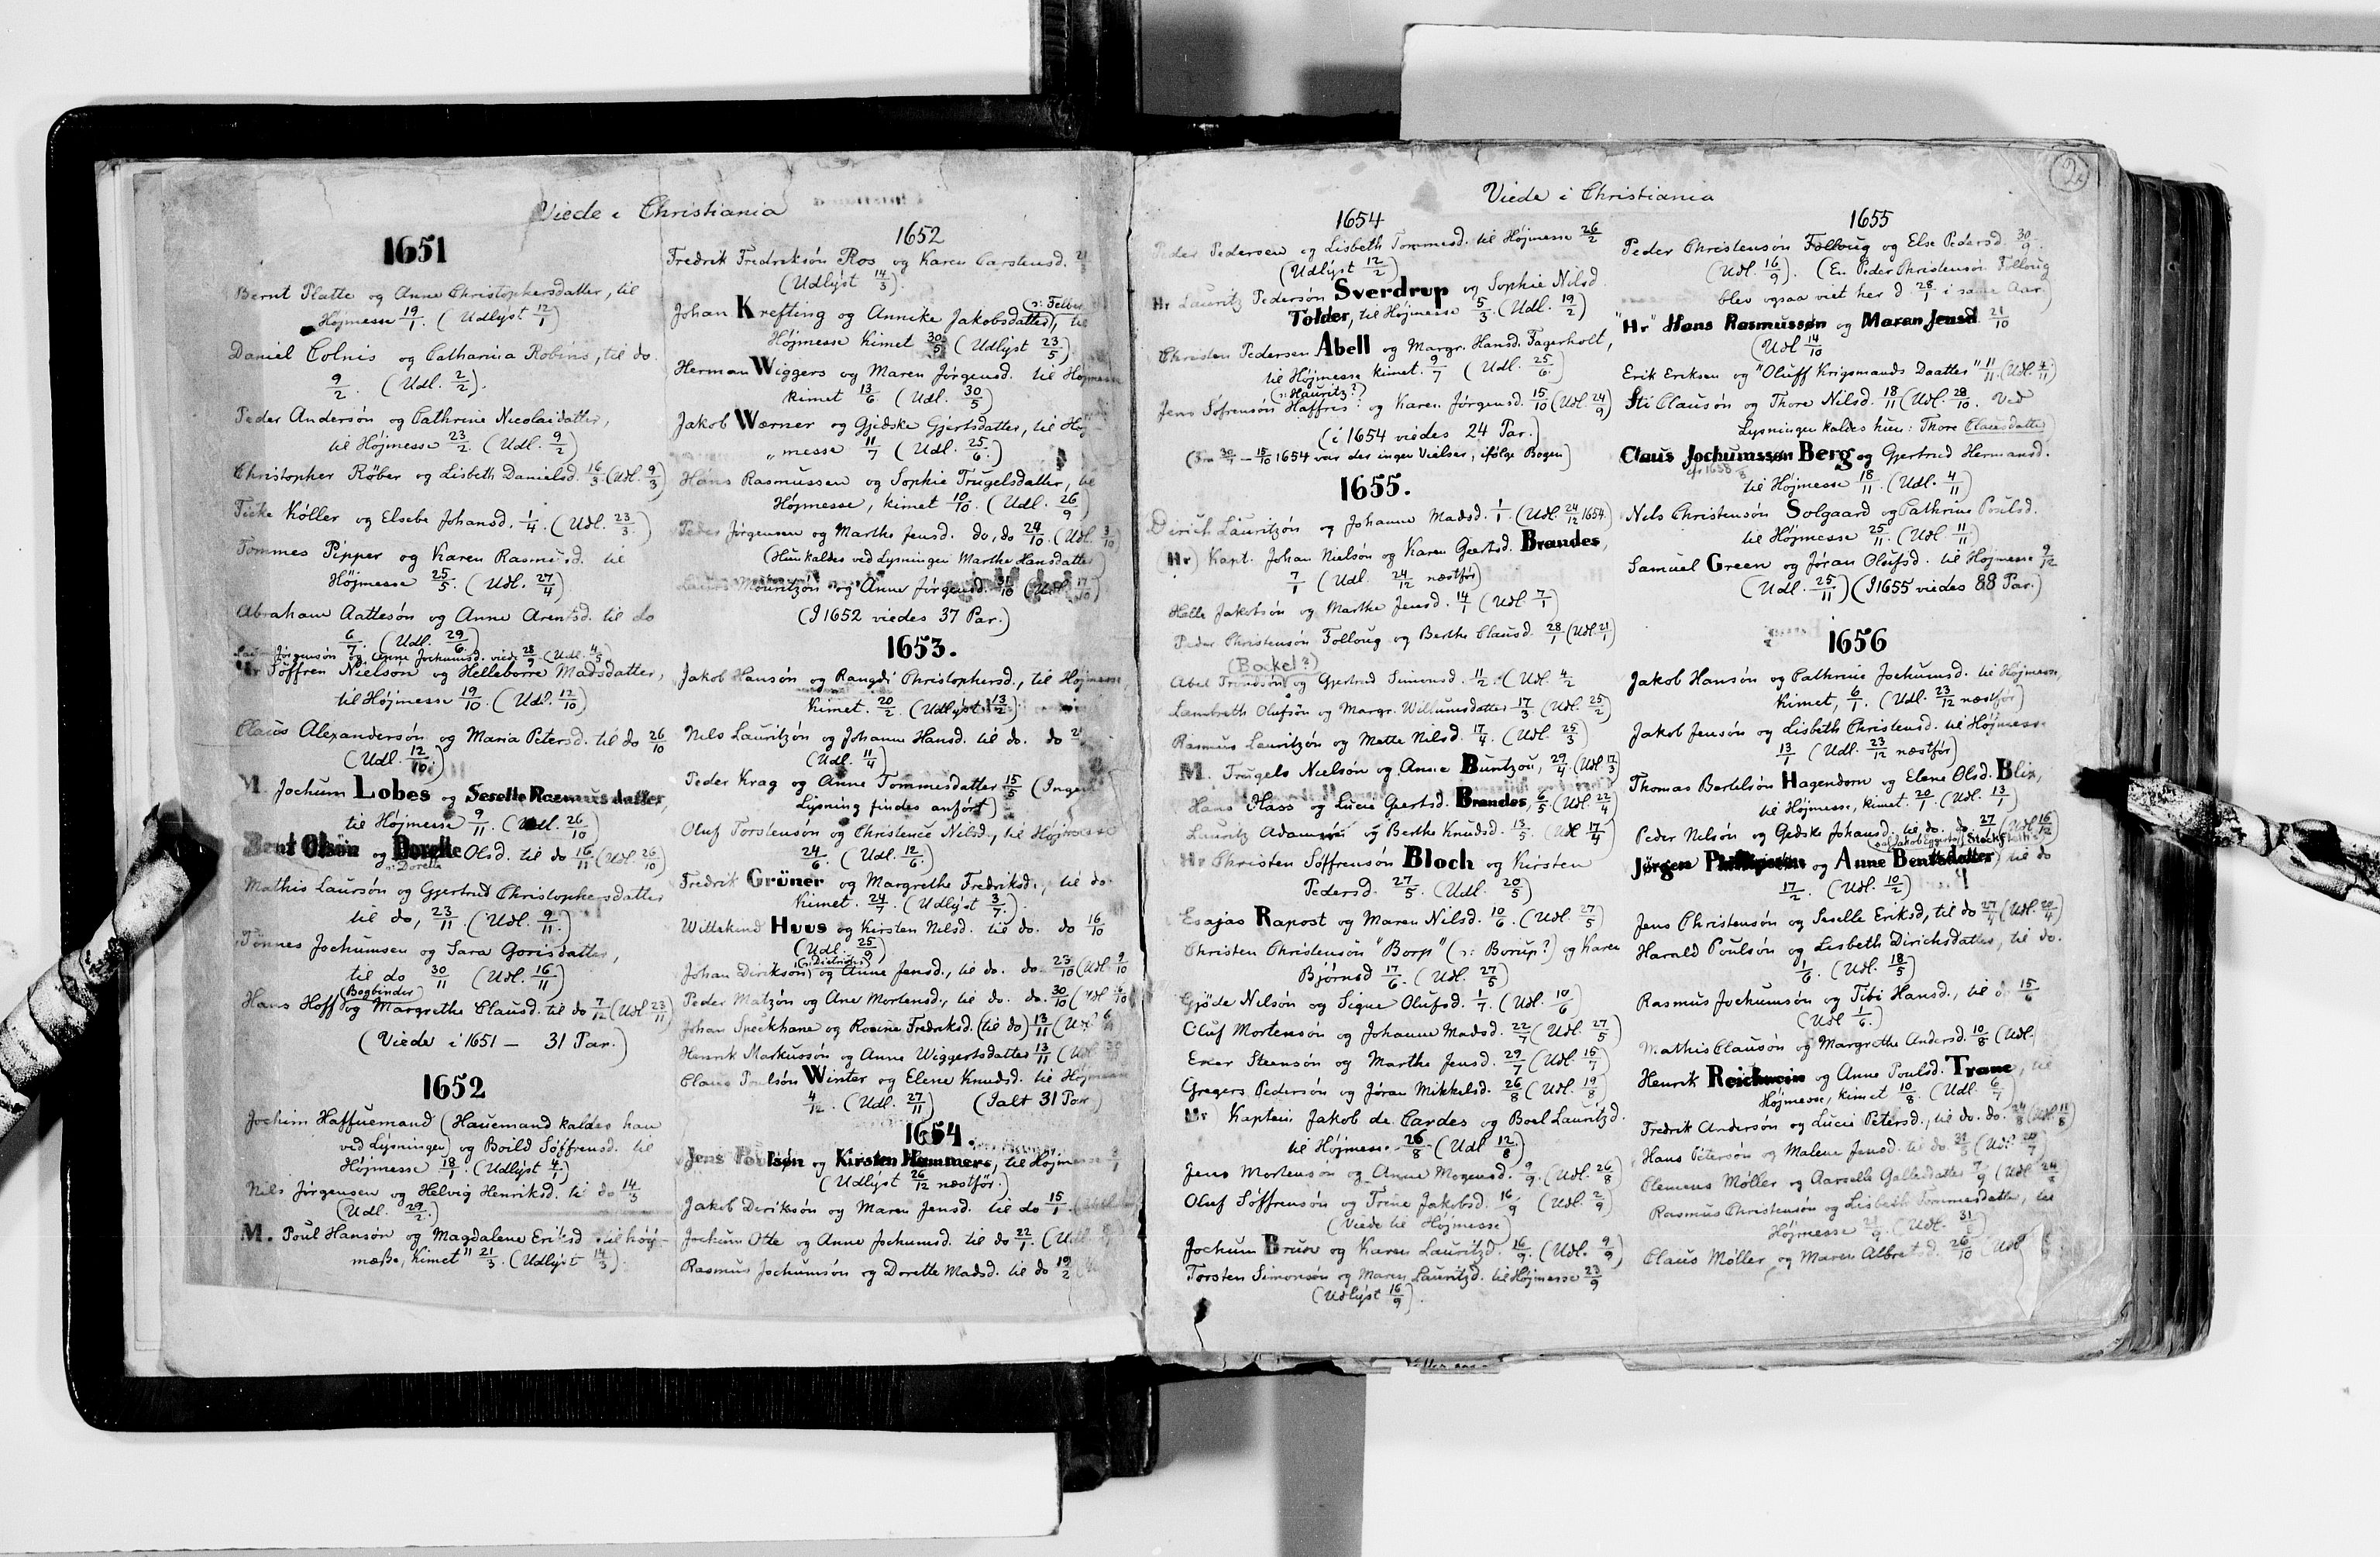 Viede i Christiania
1651
Bernt Platte og Anne Christophersdatter, til
Højmesse 19/1. (Udlyst 12/1)
Daniel Colnis og Catharina Robins, til do.
9/2. (Udl. 2/2).
Peder Andersön og Cathrine Nicolaidatter,
til Højmesse 23/2. (Udl. 9/2)
Christopher Röber og Lisbeth Danielsd. 16/3. (Udl. 9/3)
Ticke Köller og Elsebe Johansd. 1/4. (Udl. 23/3.)
Tommes Pipper og Karen Rasmusd. til
Højmesse 25/5. (Udl. 27/4)
Abraham Aattesön og Anne Arentsd. til do
6/7. (Udl. 29/6)
Jørgensön og Anne Jochumsd. viede 28/9 (Udl. 4/5)
Hr Söffren Nielsön og Helleborre Madsdatter,
til Højmesse 19/10. (Udl. 12/10)
Claus Alexandersön og Maria Petersd. til do 26/10
(Udl. 12/10.)
M. Jochum Lobes og Seselle Rasmusdatter,
til Højmesse 9/11. (Udl. 26/10)
Bent Olsön og Dorette Olsd. til do 16/11. (Udl. 26/10)
Dorette
Mathis Laursön og Gjertrud Christophersdatter
til do, 23/11. (Udl. 9/11.)
Tönnes Jochumsen og Sara Gorisdatter,
til do 30/11 (Udl. 16/11)
(Bogbinder)
Hans Hoff og Margrethe Clausd. til do 7/12 (Udl 23/11)
(Viede i 1651 — 31 Par.)
1652
Jochim Haffuemand (Hauemand kaldes han
ved Lysningen) og Boild Söffrensd. til
Højmesse 18/1. (Udlyst 4/1)
Nils Jørgensen og Helvig Henriksd. til do 14/3
(Udl. 29/2.)
M. Poul Hansön og Magdalene Eriksd til höj-
mæsse, Kimet" 21/3. (Udlyst 14/3).
1652
Fredrik Fredriksön Ros og Karen Carstensd. 21/3
(Udlyst 14/3).
Johan Krefting og Annike Jakobsdatter, til
Højmesse Kimet 30/5 (Udlyst 23/5)
Herman Wiggers og Maren Jørgensd. til Højmesse
kimet 13/6 (Udl. 30/5)
Jakob Wærner og Gjedske Gjertsdatter, til Høj-
„messe 11/7 (Udl. 25/6.)
Hans Rasmussen og Sophie Trugelsdatter, til
Højmesse, kimet 10/10. (Udl. 26/9)
Peder Jørgensen og Marthe Jensd. do, do 24/10. (Udl. 3/10)
(Hun kaldes ved Lysningen Marthe Hansdatter)
Mouritzön og Anne Jørgensd. 31/10 (Udl. 17/10)
(I 1652 viedes 37 Par.)
1653.
Jakob Hansön og Rangdi Christophersd., til Højmesse,
Kimet. 20/2. (Udlyst 13/2)
Nils Lauritzön og Johanne Hansd. til do. do
(Udl. 11/4)
Peder Krag og Anne Tommesdatter 15/5 (Ingen
Lysning findes anført)
Oluf Torstensön og Christence Nilsd, til Højmesse
24/6. (Udl. 12/6.)
Fredrik Grüner og Margrethe Fredriksd., til do.
Kimet. 24/7. (Udlyst 3/7.)
Wittekind Huus og Kirsten Nilsd. til do. do 16/10
(Udl. 25/9)
Johan Dirikson og Anne Jensd., til do. do 23/10 (Udl. 9/10
Peder Matzön og Ane Mortensd., til do. do. 30/10 (Udl 16/10)
Johan Sneckhane og Rosine Fredriksd. (til do) 13/11 (Udl 6/11
Henrik Markussön og Anne Wiggertsdatter 13/11 (Udl
Claus Poulsön Winter og Elene Knudsd. til Højmesse
4/12. (Udl. 27/11) (Ialt 31 Par.)
1654.
Jens Poulsøn og Kirsten Hammers, til Højmesse
(Udlyst 26/12 nestför.)
Jakob Deriksön og Maren Jensd. til do 15/1
Jochum Otte og Anne Jochumsd. til do 22/1.
Rasmus Jochumsön og Dorette Madsd. til do 19/2
2.
Viede i Christiania
1654
Peder Pedersen og Lisbeth Tommesd. til Højmesse 26/2
(Udlyst 12/2)
Hr Lauritz Pedersön Sverdrup og Sophie Nilsd.
Tolder, til Højmesse 5/3. (Udl. 19/2)
Christen Pedersen Abell og Margr. Hansd. Fagerholt,
til Højmesse kimet. 9/7 (Udl. 25/6)
(: Hauritz?)
Jens Söfrensön Haffris? og Karen Jørgensd. 15/10 (Udl. 24/9)
(i 1654 viedes 24 Par.)
(Fra 30/7 – 15/10 1654 var der ingen Vielser, ifölge Bogen)
1655.
Dirich Lauritzön og Johanne Madsd. 1/1. (Udl. 24/12 1654.)
(Hr) Kapt. Johan Nielsön og Karen Geertsd. Brandes,
7/1 (Udl. 24/12 næstför)
Helle Jakobsön og Marthe Jensd. 14/1 (Udl 7/1)
Peder Christensön Folloug og Berthe Clausd. 28/1 (Udl. 21/1)
(Bockel?)
Abel Trondsön og Gjertrud Simonsd. 11/2. (Udl. 4/2
Lambreth Olufsön og Margr. Willumsdatter 17/3. (Udl. 25/2)
Rasmus Lauritzön og Mette Nilsd. 17/4. (Udl. 25/3)
M. Trugels Nielsön og Anne Buntzou, 29/4. (Udl 17/3)
Hans Hass og Lucie Geertsd. Brandes, 6/5 (Udl. 22/4)
Lauritz Adamsön og Berthe Knudsd. 13/5. (Udl 17/4)
Hr Christen Söffrensön Bloch og Kirsten
Pedersd. 27/5. (Udl. 20/5)
Esajas Rapost og Maren Nilsd. 10/6. (Udl. 27/5)
Christen Christensön "Borp" (: Borup?) og Karen
Bjørnsd 17/6. (Udl. 27/5)
Gjöde Nilsön og Signe Olufsd. 1/7. (Udl. 10/6)
Oluf Mortensön og Johanne Madsd. 22/7 (Udl. 27/5)
Ener Steensön og Marthe Jensd. 29/7 (Udl. 15/7)
Gregers Pedersön og Jøran Mikkelsd. 26/8 (Udl. 19/8)
Hr Kaptein Jakob de Cardes og Boel Lauritzd.
til Højmesse 26/8 (Udl 12/8)
Jens Mortensön og Anne Mogensd. 9/9. (Udl. 26/8)
Oluf Söffrensön og Trine Jakobsd. 16/9 (Udl. 2/9)
(Viede til Højmesse)
Jochum Brun og Karen Lauritzd. 16/9. (Udl. 9/9)
Torsten Simonsön og Maren Lauritzd. til Højmesse 23/9
(Udlyst 16/9).
1655
Peder Christensön Folloug og Else Pedersd. 30/9.
(Udl. 16/9). (En Peder Christensön Folloug
blev ogsaa viet her d 28/1 i samme Aar)
"Hr" Hans Rasmussøn og Maren Jensd. 21/10
(Udl 14/10
Erik Eriksen og "Oluff Krigsmands Daatter" 11/11. (Udl. 4/11)
Sti Clausön og Thore Nilsd. 18/11 (Udl. 28/10. Ved
Lysningen kaldes hun: Thore Clausdatter
Claus Jochumssøn Berg og Gjertrud Hermansd.
til Højmesse 18/11. (Udl. 4/11)
Nils Christensön Solgaard og Cathrine Poulsd.
til Højmesse 25/11. (Udl. 11/11)
Samuel Green og Jøran Olufsd. til Højmesse 9/12
(Udl. 25/11) (I 1655 viedes 88 Par.)
1656
Jakob Hansön og Cathrine Jochumsd. til Højmesse,
Kimet, 6/1. (Udl. 23/12 næstför)
Jakob Jensön og Lisbeth Christensd. til Højmesse
13/1 (Udl. 23/12 næstför)
Thomas Bertelsön Hagendorn og Elene Olsd. Blix,
til Højmesse, kimet. 20/1. (Udl. 13/1)
Peder Nilsön og Gedske Johansd. til do. do 27/1 (Udl 16/12)
Jørgen Philipsøn og Anne Bentsdatter, til do
17/2. (Udl. 10/2)
Jens Christensön og Seselle Eriksd, til do 27/4 (Udl. 20/4)
Harald Poulsön og Lisbeth Dirichsdatter, til do.
1/6. (Udl. 18/5)
Rasmus Jochumsön og Tibi Hansd., til do 15/6
(Udl 1/6.)
Mathis Clausön og Margrethe Andersd. 10/8 (Udl.
Henrik Reichwein og Anne Poulsd. Trane, til
Højmesse, kimet 10/8. (Udl. 6/7)
Fredrik Andersön og Lucie Petersd., til do. do. 24/8 (Udl. 11/8)
Hans Petersön og Malene Jensd. til do 31/8 (Udl. 20/7)
Clemens Møller og Aarselle Galledatter 7/9 (Udl 24/8)
Rasmus Christensön og Lisbeth Tommesdatter, til
Højmesse (Udl. 31/8)
Claus Møller og Maren Albretsd. 26/10 (Udl